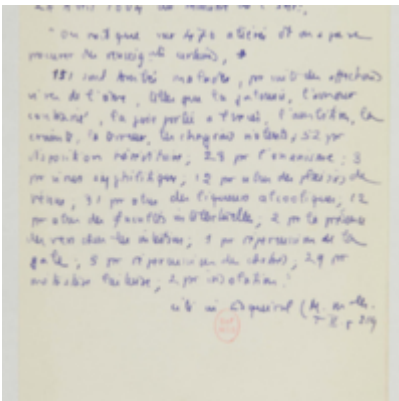 "On voit que sur 470 aliénés dt on a pu se
procurer des renseig^ts certains,
151 sont tombés malades, par suite des affections
vives de l'âme, telles que la jalousie, l'amour
contrarié, la joie portée à l'excès, l'ambition, la
crainte, la terreur, les chagrins violents ; 52 par
disposition héréditaire ; 28 par l'onanisme ; 3
par virus syphilitique ; 12 par abus des plaisirs de
Vénus ; 31 par abus des liqueurs alcooliques ; 12
par abus des facultés intellectuelles ; 2 par la présence
des vers dans les intestins ; 1 par répercussion de la
gale ; 5 par répercussion de dartres ; 29 par
métastase laiteuse ; 2 par insolation."
cité in Esquirol (M. m
T. II. p 219